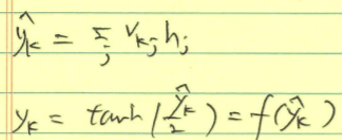 ŷₖ = Σⱼ vₖⱼ hⱼ
yₖ = tanh(ŷₖ/2) = f(ŷₖ)